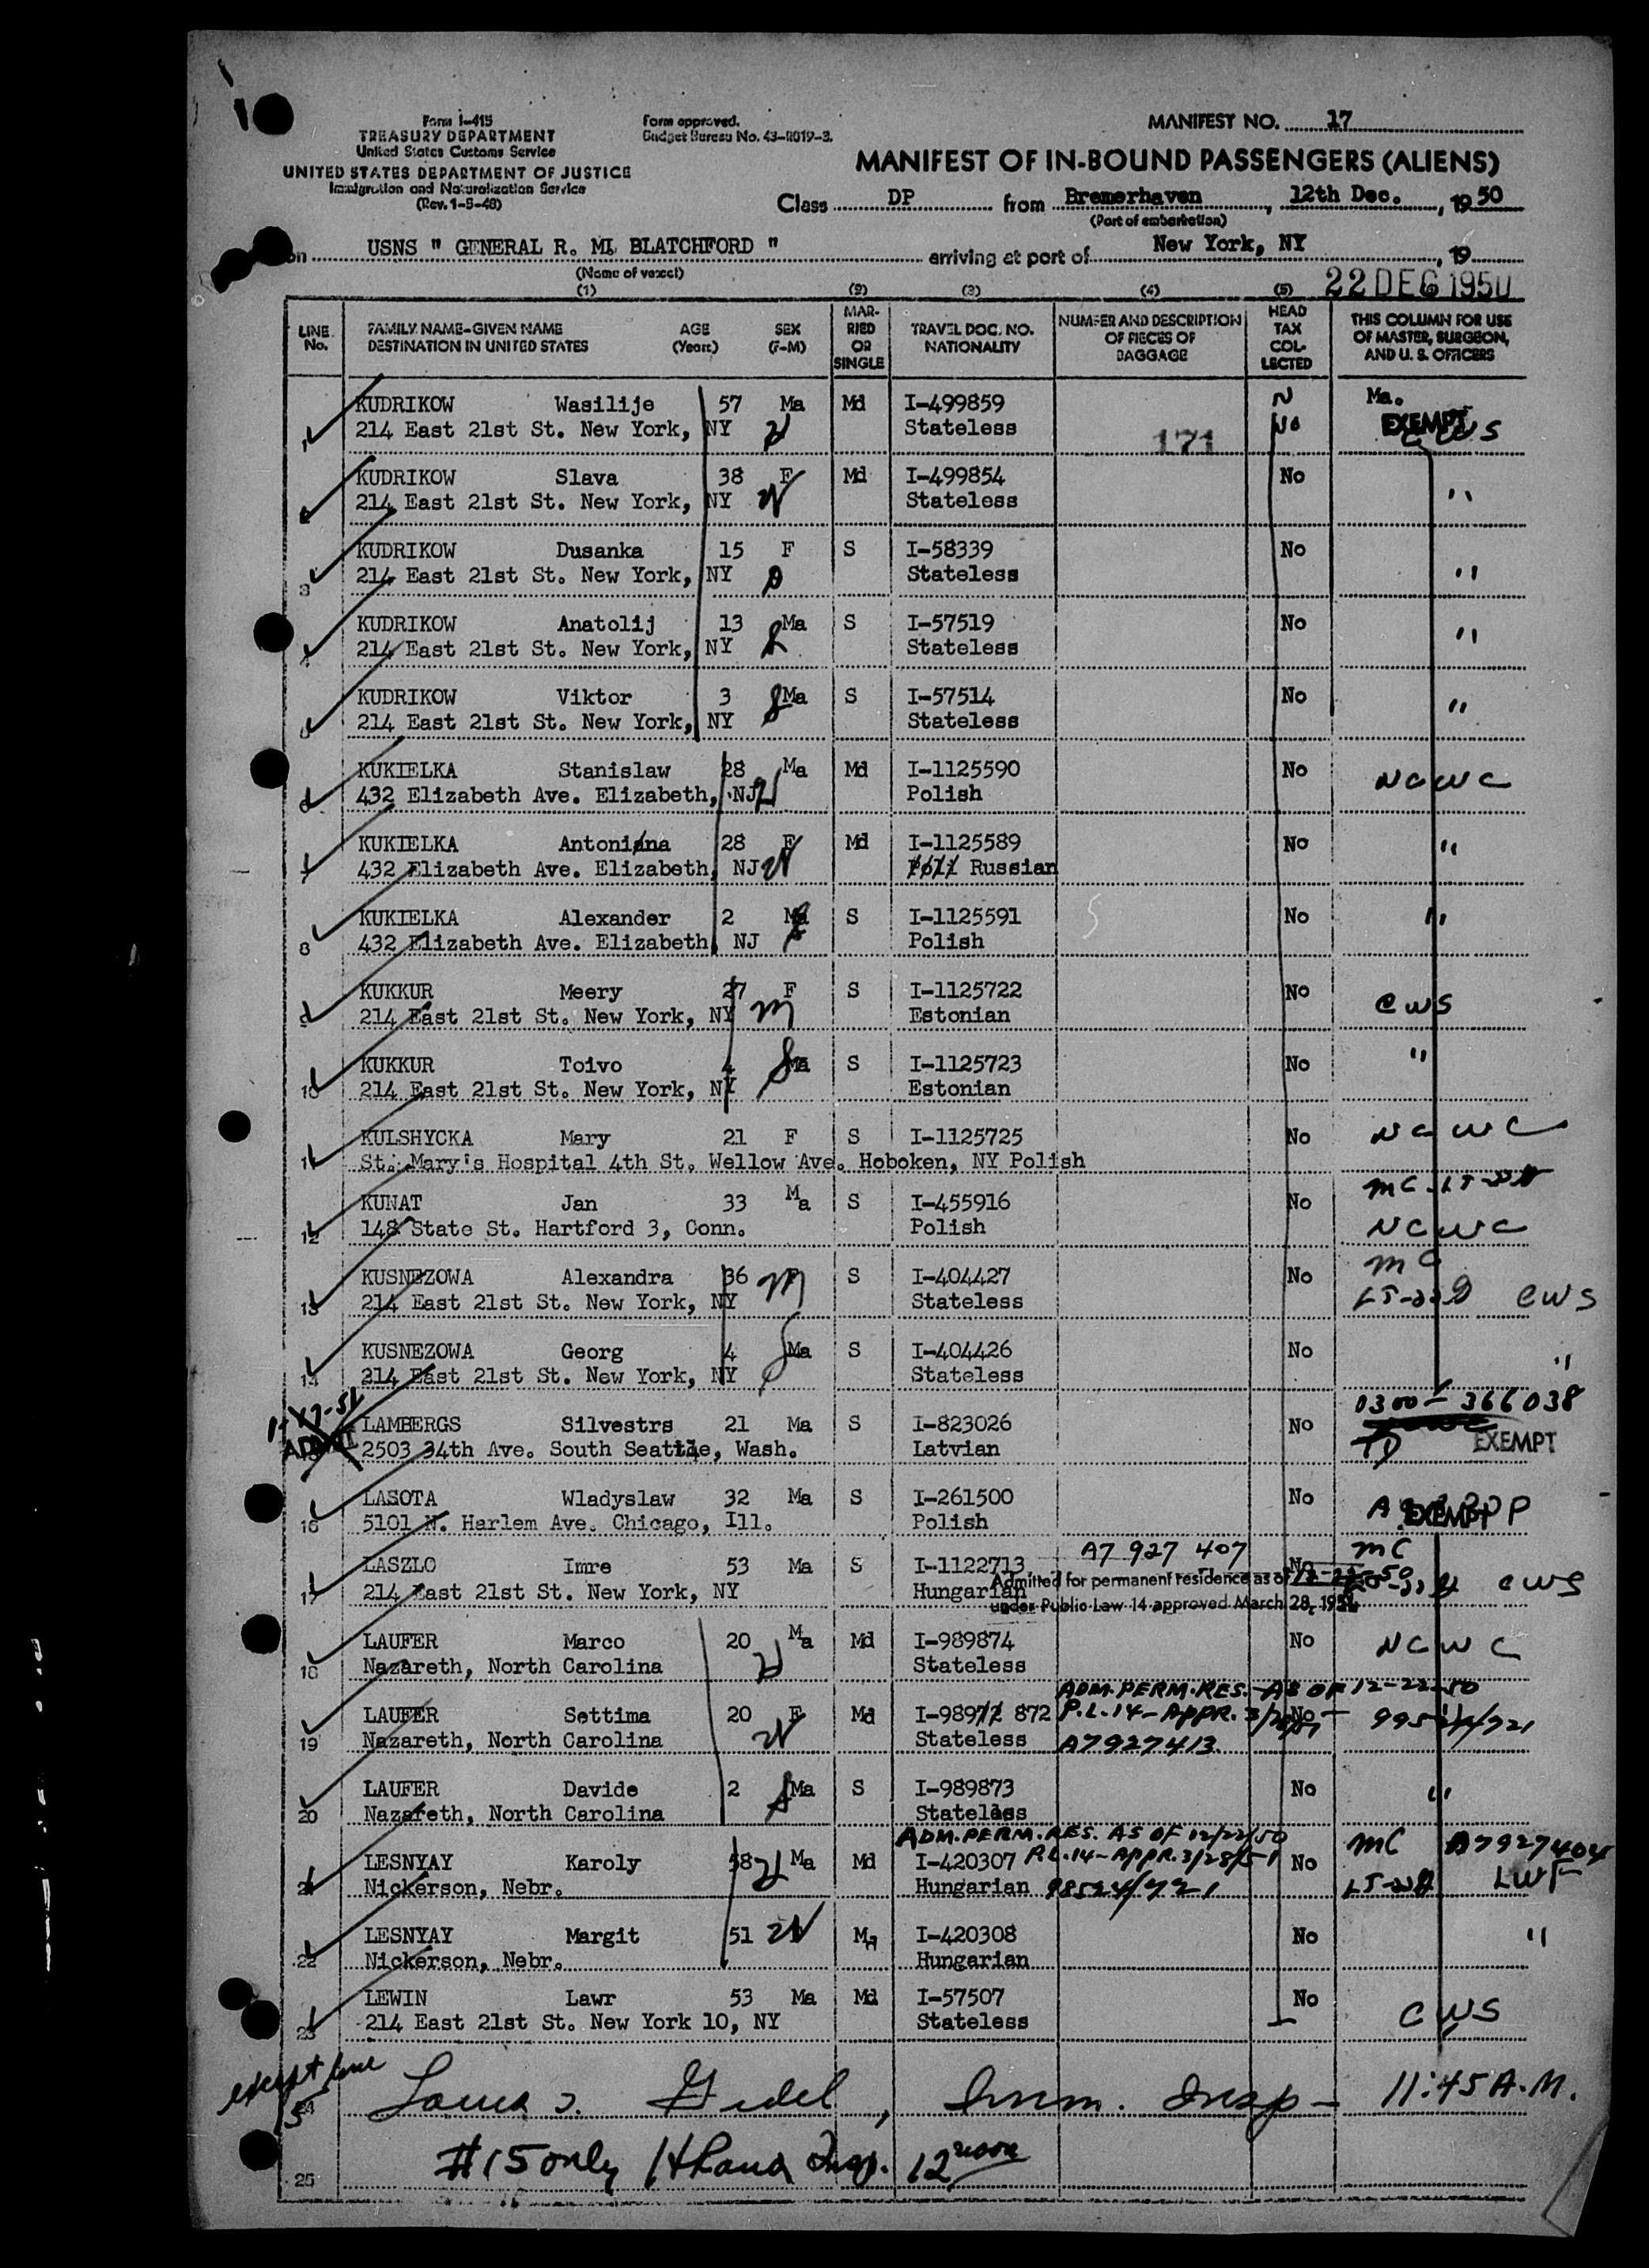 Form I-415
TREASURY DEPARTMENT
United States Customs Service
UNITED STATES DEPARTMENT OF JUSTICE
Immigration and Naturalization Service
(Rev. 1-5-48)
Form approved.
Budget Bureau No. 43-R019-3.
MANIFEST NO. 17
MANIFEST OF IN-BOUND PASSENGERS (ALIENS)
Class DP from Bremerhaven, 12th Dec., 1950
(Port of embarkation)
on USNS " GENERAL R. M. BLATCHFORD " arriving at port of New York, NY, 19
(Name of vessel)
22 DEC 1950
(1) (2) (3) (4) (5)
LINE No. FAMILY NAME-GIVEN NAME DESTINATION IN UNITED STATES AGE (Years) SEX (F-M) MARRIED OR SINGLE TRAVEL DOC. NO. NATIONALITY NUMBER AND DESCRIPTION OF PIECES OF BAGGAGE HEAD TAX COLLECTED THIS COLUMN FOR USE OF MASTER, SURGEON, AND U. S. OFFICERS
1 KUDRIKOW Wasilije 57 Ma Md I-499859 Ma.
214 East 21st St. New York, NY Stateless 171 No EXEMPT CWS
2 KUDRIKOW Slava 38 F Md I-499854 No
214 East 21st St. New York, NY W Stateless "
3 KUDRIKOW Dusanka 15 F S I-58339 No
214 East 21st St. New York, NY Stateless "
4 KUDRIKOW Anatolij 13 Ma S I-57519 No
214 East 21st St. New York, NY Stateless "
5 KUDRIKOW Viktor 3 Ma S I-57514 No
214 East 21st St. New York, NY Stateless "
6 KUKIELKA Stanislaw 28 Ma Md I-1125590 No
432 Elizabeth Ave. Elizabeth, NJ H Polish NCWC
7 KUKIELKA Antonina 28 F Md I-1125589 No
432 Elizabeth Ave. Elizabeth, NJ W Russian "
8 KUKIELKA Alexander 2 Ma S I-1125591 No "
432 Elizabeth Ave. Elizabeth, NJ Polish
9 KUKKUR Meery 27 F S I-1125722 No
214 East 21st St. New York, NY M Estonian CWS
10 KUKKUR Toivo 4 Ma S I-1125723 No "
214 East 21st St. New York, NY Estonian
11 KULSHYCKA Mary 21 F S I-1125725 No NCWC
St. Mary's Hospital 4th St. Wellow Ave. Hoboken, NY Polish
12 KUNAT Jan 33 Ma S I-455916 No MC
148 State St. Hartford 3, Conn. Polish NCWC
13 KUSNEZOWA Alexandra 36 F M S I-404427 No MC
214 East 21st St. New York, NY Stateless CWS
14 KUSNEZOWA Georg 4 Ma S I-404426 No
214 East 21st St. New York, NY Stateless "
0300-366038
LAMBERGS Silvestrs 21 Ma S I-823026 No
2503 34th Ave. South Seattle, Wash. Latvian EXEMPT
16 LASOTA Wladyslaw 32 Ma S I-261500 No
5101 N. Harlem Ave. Chicago, Ill. Polish EXEMPT
17 LASZLO Imre 53 Ma S I-1122713 A7 927 407 No MC
214 East 21st St. New York, NY Hungarian CWS
Admitted for permanent residence as of 12-22-50
under Public Law 14 approved March 28, 1951
18 LAUFER Marco 20 Ma Md I-989874 No NCWC
Nazareth, North Carolina H Stateless
ADM. PERM. RES. - AS OF 12-22-50
19 LAUFER Settima 20 F Md I-989 872 P.L.-14-APPR. 3/28/51 No
Nazareth, North Carolina W Stateless A7927413
20 LAUFER Davide 2 Ma S I-989873 No "
Nazareth, North Carolina Stateless
ADM. PERM. RES. AS OF 12/22/50
21 LESNYAY Karoly 58 H Ma Md I-420307 P.L.14-APPR. 3/28/51 No MC A7927404
Nickerson, Nebr. Hungarian LWF
22 LESNYAY Margit 51 W I-420308 No "
Nickerson, Nebr. Hungarian
23 LEWIN Lawr 53 Ma Md I-57507 No
214 East 21st St. New York 10, NY Stateless CWS
except line
15
24 Imm. Insp - 11:45 A.M.
#15 only Insp. 12 noon
25